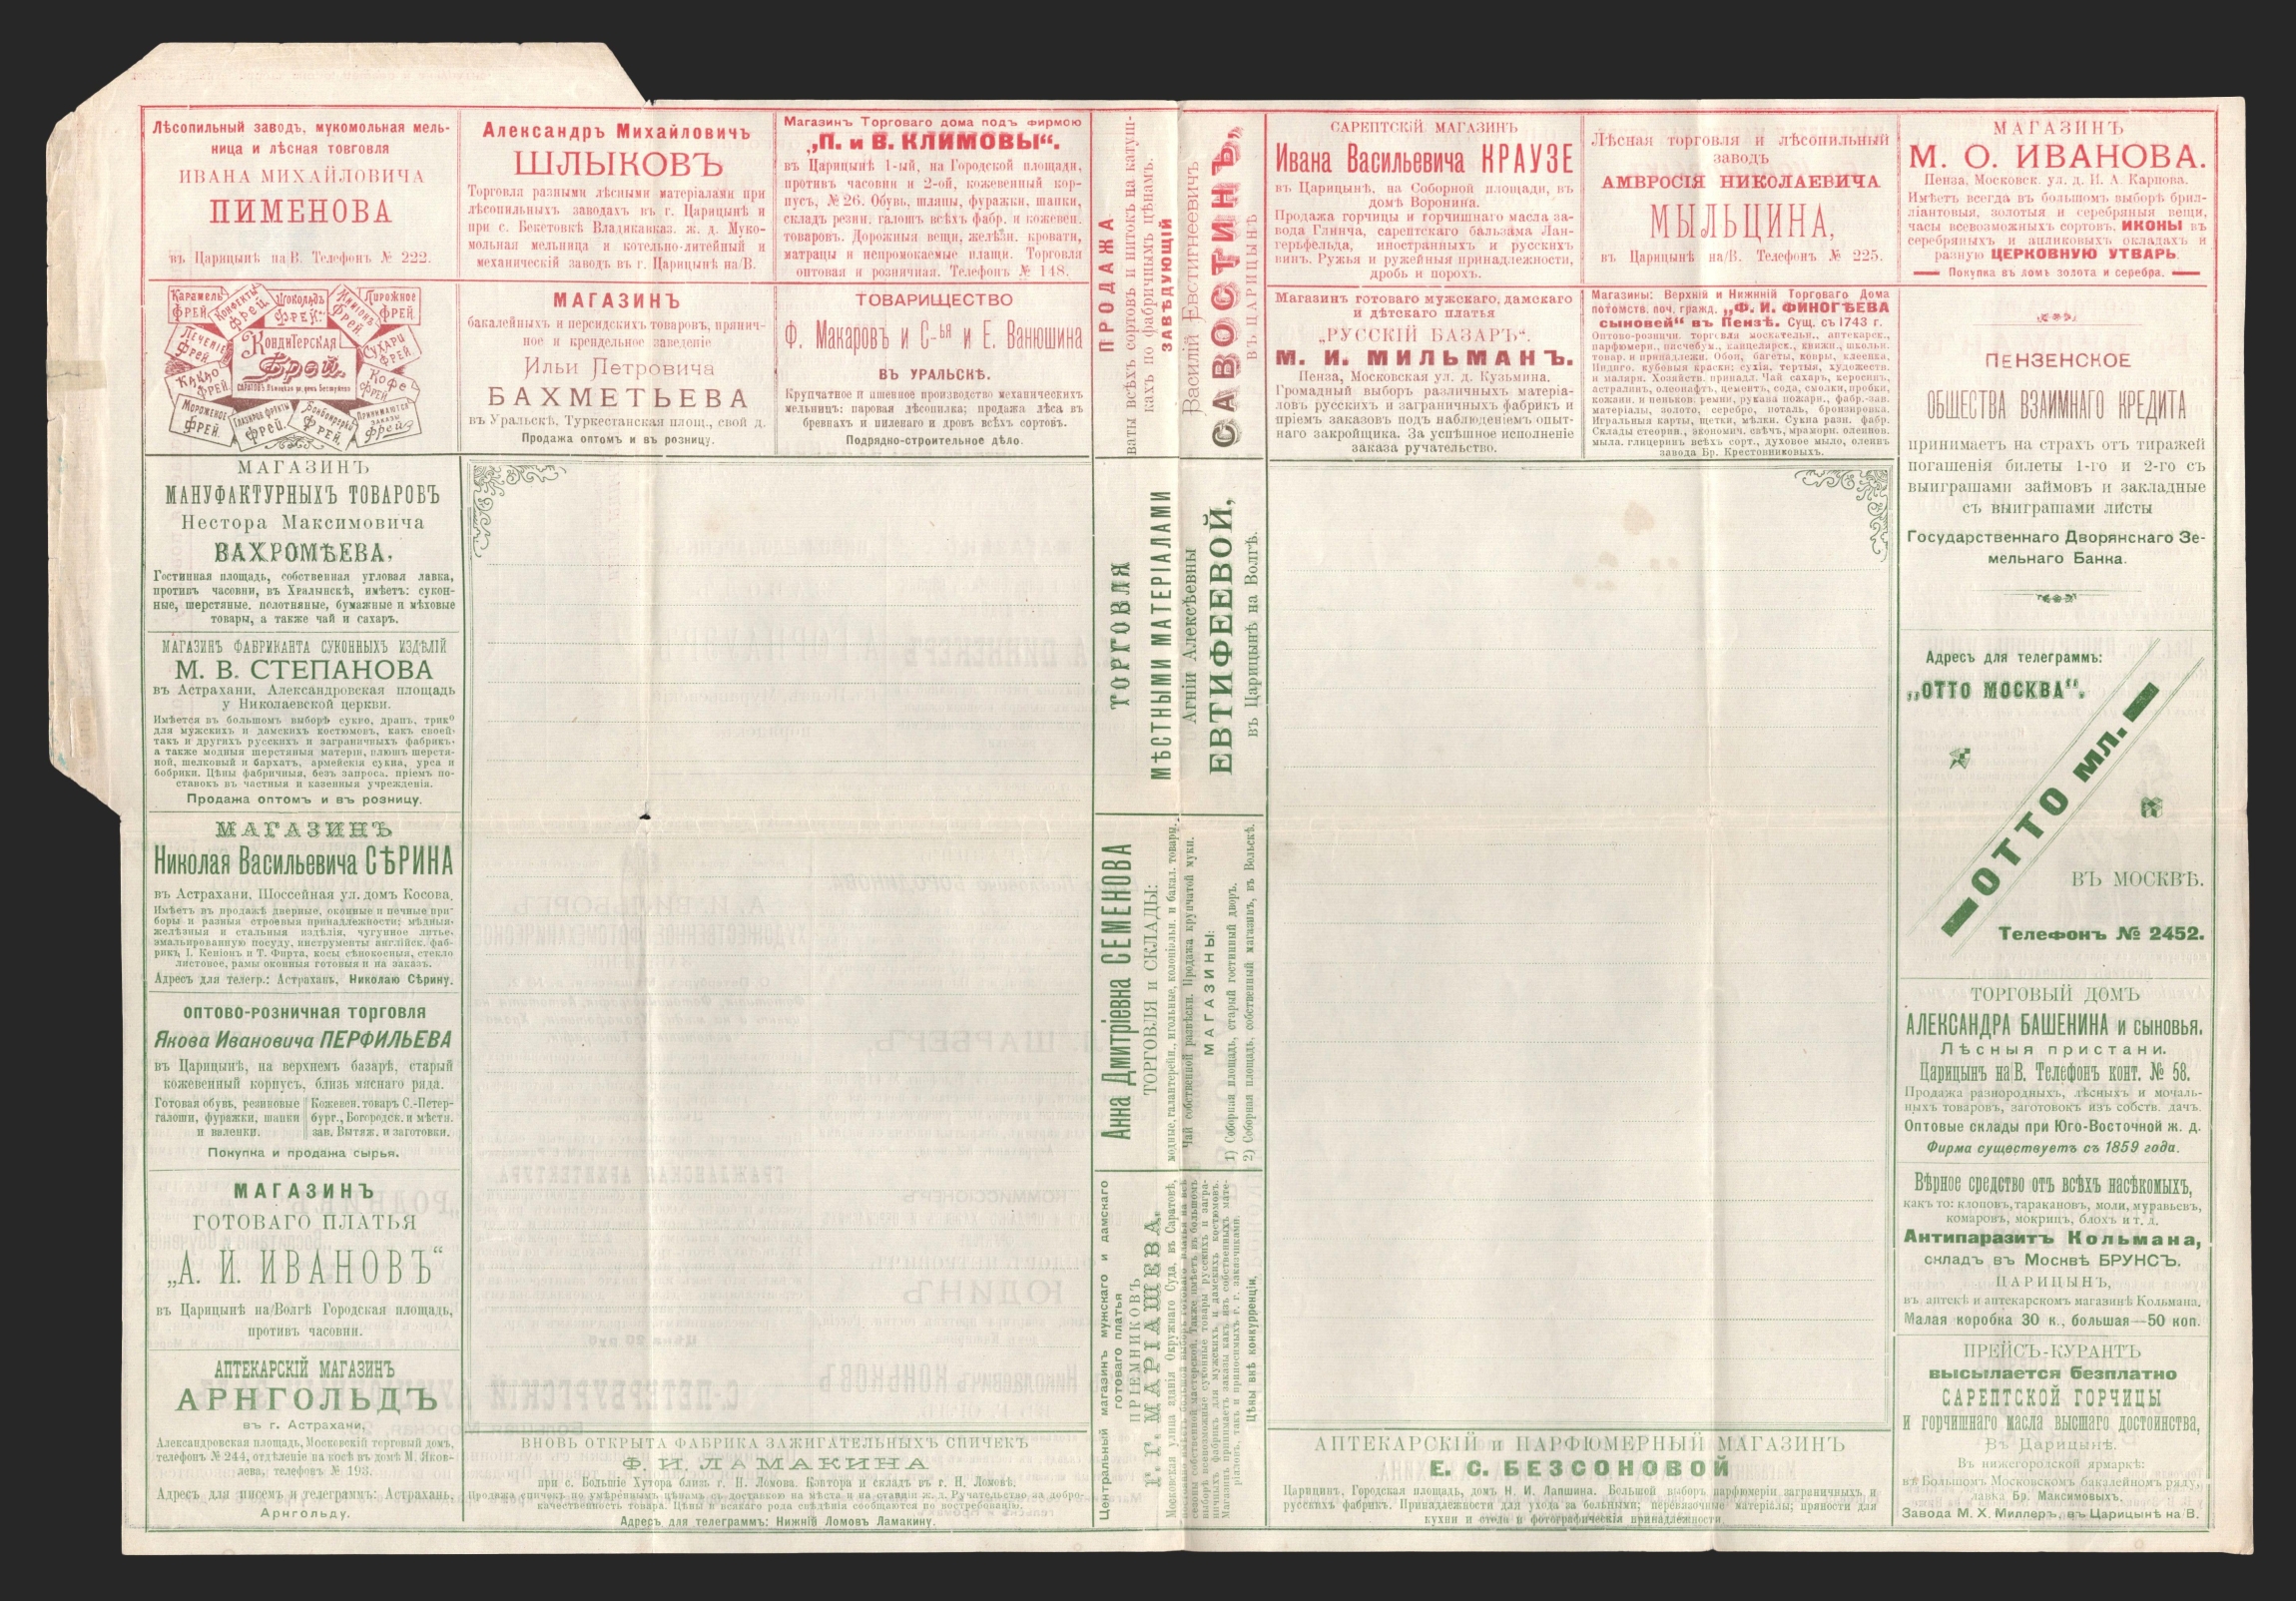 Лѣсопильный заводъ, мукомольная мель-
ница и лѣсная товговля
ИВАНА МИХАЙЛОВИЧА
ПИМЕНОВА
въ Царицынѣ на В. Телефонъ № 222.
Александръ Михайловичъ
ШЛЫКОВЪ
Торговля разными лѣсными матеріалами при
лѣсопильныхъ заводахъ въ г. Царицынѣ и
при с. Бекетовкѣ Владикавказ. ж. д. Муко-
мольная мельница и котельно-литейный и
механическій заводъ въ г. Царицынѣ на/В.
Магазинъ Торговаго дома подъ фирмою
„П. и В. КЛИМОВЫ“.
въ Царицынѣ 1-ый, на Городской площади,
противъ часовни и 2-ой, кожевенный кор-
пусъ, № 26. Обувь, шляпы, фуражки, шапки,
складъ резин. галошъ всѣхъ фабр. и кожевен.
товаровъ. Дорожныя вещи, желѣзн. кровати,
матрацы и непромокаемые плащи. Торговля
оптовая и розничная. Телефонъ № 148.
ПРОДАЖА
ваты всѣхъ сортовъ и нитокъ на катуш-
кахъ по фабричнымъ цѣнамъ.
ЗАВѢДУЮЩІЙ
Василій Евстигнеевичъ
САВОСТИНЪ
ВЪ ЦАРИЦЫНѢ
САРЕПТСКІЙ МАГАЗИНЪ
Ивана Васильевича КРАУЗЕ
въ Царицынѣ, на Соборной площади, въ
домѣ Воронина.
Продажа горчицы и горчишнаго масла за-
вода Глинча, сарептскаго бальзама Лан-
герьфельда, иностранныхъ и русскихъ
винъ. Ружья и ружейныя принадлежности,
дробь и порохъ.
Лѣсная торговля и лѣсопильный
заводъ
АМВРОСІЯ НИКОЛАЕВИЧА
МЫЛЬЦИНА,
въ Царицынѣ на/В. Телефонъ № 225.
МАГАЗИНЪ
М. О. ИВАНОВА.
Пенза, Московск. ул. д. И. А. Карпова.
Имѣетъ всегда въ большомъ выборѣ брил-
ліантовыя, золотыя и серебряныя вещи,
часы всевозможныхъ сортовъ, ИКОНЫ въ
серебряныхъ и апликовыхъ окладахъ и
разную ЦЕРКОВНУЮ УТВАРЬ.
Покупка въ ломъ золота и серебра.
Карамель ФРЕЙ.
Конфекты ФРЕЙ
Шоколадъ ФРЕЙ.
Пирожное ФРЕЙ.
Печеніе ФРЕЙ.
Кондитерская
Фрей.
Сухари ФРЕЙ.
Какао ФРЕЙ.
Кофе ФРЕЙ.
Мороженое ФРЕЙ.
ФРЕЙ.
Бонбоньерки ФРЕЙ.
Принимаются заказы Фрей
МАГАЗИНЪ
бакалейныхъ и персидскихъ товаровъ, прянич-
ное и крендельное заведеніе
Ильи Петровича
БАХМЕТЬЕВА
въ Уральскѣ, Туркестанская площ., свой д.
Продажа оптомъ и въ розницу.
ТОВАРИЩЕСТВО
Ф. Макаровъ и С-ья и Е. Ванюшина
ВЪ УРАЛЬСКѢ.
Крупчатное и пшенное производство механическихъ
мельницъ: паровая лѣсопилка; продажа лѣса въ
бревнахъ и пиленаго и дровъ всѣхъ сортовъ.
Подрядно-строительное дѣло.
Магазинъ готоваго мужскаго, дамскаго
и дѣтскаго платья
„РУССКІЙ БАЗАРЪ“.
М. И. МИЛЬМАНЪ.
Пенза, Московская ул. д. Кузьмина.
Громадный выборъ различныхъ матеріа-
ловъ русскихъ и заграничныхъ фабрикъ и
пріемъ заказовъ подъ наблюденіемъ опыт-
наго закройщика. За успѣшное исполненіе
заказа ручательство.
Магазины: Верхній и Нижній Торговаго Дома
потомств. поч. гражд. „Ф. И. ФИНОГѢЕВА
сыновей“ въ Пензѣ. Сущ. съ 1743 г.
Оптово-розничн. торговля москательн., аптекарск.,
парфюмерн., писчебум., канцелярск., книжн., школьн.
товар. и принадлежн. Обои, багеты, ковры, клеенка,
Индиго, кубовыя краски; сухія, тертыя, художеств.
и малярн. Хозяйств. принадл. Чай сахаръ, керосинъ,
астралинъ, олеонафтъ, цементъ, сода, смолки, пробки,
кожанн. и пеньков. ремни, рукава пожарн., фабр.-зав.
матеріалы, золото, серебро, поталь, бронзировка.
Игральныя карты, щетки, мѣлки. Сукна разн. фабр.
Склады стеорин., экономич. свѣчъ, мрамори. олеинов.
мыла, глицеринъ всѣхъ сорт., духовое мыло, олеинъ
завода Бр. Крестовниковыхъ.
ПЕНЗЕНСКОЕ
ОБЩЕСТВА ВЗАИМНАГО КРЕДИТА
принимаетъ на страхъ отъ тиражей
погашенія билеты 1-го и 2-го съ
выиграшами займовъ и закладные
съ выиграшами листы
Государственнаго Дворянскаго Зе-
мельнаго Банка.
МАГАЗИНЪ
МАНУФАКТУРНЫХЪ ТОВАРОВЪ
Нестора Максимовича
ВАХРОМѢЕВА,
Гостинная площадь, собственная угловая лавка,
противъ часовни, въ Хвалынскѣ, имѣетъ: сукон-
ные, шерстяные, полотняные, бумажные и мѣховые
товары, а также чай и сахаръ.
МАГАЗИНЪ ФАБРИКАНТА СУКОННЫХЪ ИЗДѢЛІЙ
М. В. СТЕПАНОВА
въ Астрахани, Александровская площадь
у Николаевской церкви.
Имѣется въ большомъ выборѣ сукно, драпъ, трико
для мужскихъ и дамскихъ костюмовъ, какъ своей
такъ и другихъ русскихъ и заграничныхъ фабрикъ,
а также модныя шерстяныя матеріи, плюшъ шерстя-
ной, шелковый и бархатъ, армейскія сукна, урса и
бобрики. Цѣны фабричныя, безъ запроса, пріемъ по-
ставокъ въ частныя и казенныя учрежденія.
Продажа оптомъ и въ розницу.
МАГАЗИНЪ
Николая Васильевича СѢРИНА
въ Астрахани, Шоссейная ул. домъ Косова,
Имѣетъ въ продажѣ дверные, оконные и печные при-
боры и разныя строевыя принадлежности; мѣдныя-
желѣзныя и стальныя издѣлія, чугунное литье,
эмальированную посуду, инструменты англійск. фаб-
рикъ І. Кеніонъ и Т. Фирта, косы сѣнокосныя, стекло
листовое, рамы оконныя готовыя и на заказъ.
Адресъ для телегр.: Астрахань, Николаю Сѣрину.
ОПТОВО-РОЗНИЧНАЯ ТОРГОВЛЯ
Якова Ивановича ПЕРФИЛЬЕВА
въ Царицынѣ, на верхнемъ базарѣ, старый
кожевенный корпусъ, близь мяснаго ряда.
Готовая обувь, резиновые
галоши, фуражки, шапки
и валенки.
Кожевен. товаръ С.-Петер-
бург., Богородск. и мѣстн.
зав. Вытяж. и заготовки.
Покупка и продажа сырья.
МАГАЗИНЪ
ГОТОВАГО ПЛАТЬЯ
„А. И. ИВАНОВЪ“
въ Царицынѣ на/Волгѣ Городская площадь,
противъ часовни.
АПТЕКАРСКІЙ МАГАЗИНЪ
АРНГОЛЬДЪ
въ г. Астрахани,
Александровская площадь, Московскій торговый домъ,
телефонъ № 244, отдѣленіе на косѣ въ домѣ М. Яков-
лева, телефонъ № 193.
Адресъ для писемъ и телеграммъ: Астрахань,
Арнгольду.
ТОРГОВЛЯ
МѢСТНЫМИ МАТЕРІАЛАМИ
Агніи Алексѣевны
ЕВТИФЕЕВОЙ,
въ Царицынѣ на Волгѣ.
Анна Дмитріевна СЕМЕНОВА
ТОРГОВЛЯ и СКЛАДЫ:
модные, галантерейн., игольные, колоніальн. и бакал. товары.
Чай собственной развѣски. Продажа крупчатой муки.
МАГАЗИНЫ:
1) Соборная площадь, старый гостинный дворъ.
2) Соборная площадь, собственный магазинъ, въ Вольскѣ.
Центральный магазинъ мужскаго и дамскаго
готоваго платья
ПРІЕМНИКОВЪ
Г. Г. МАРГАШЕВА.
Московская улица зданія Окружнаго Суда, въ Саратовѣ,
Магазинъ принимаетъ заказы какъ изъ собственныхъ мате-
ріаловъ, такъ и приносимыхъ г. г. заказчиками.
Цѣны внѣ конкурренціи.
ВНОВЬ ОТКРЫТА ФАБРИКА ЗАЖИГАТЕЛЬНЫХЪ СПИЧЕКЪ
Ф. И. ЛАМАКИНА
при с. Большіе Хутора близь г. Н. Ломова. Контора и складъ въ г. Н. Ломовѣ.
Продажа спичекъ по умѣреннымъ цѣнамъ съ доставкою на мѣста и на станціи ж. д. Ручательство за добро-
качественность товара. Цѣны и всякаго рода свѣдѣнія сообщаются по востребованію.
Адресъ для телеграммъ: Нижній Ломовъ Ламакину.
АПТЕКАРСКІЙ и ПАРФЮМЕРНЫЙ МАГАЗИНЪ
Е. С. БЕЗСОНОВОЙ
Царицинъ, Городская площадь, домъ Н. И. Лапшина. Большой выборъ парфюмеріи заграничныхъ и
русскихъ фабрикъ. Принадлежности для ухода за больными; перевязочные матеріалы; пряности для
кухни и стола и фотографическія принадлежности.
Адресъ для телеграммъ:
„ОТТО МОСКВА“.
ОТТО МЛ.
ВЪ МОСКВѢ.
Телефонъ № 2452.
ТОРГОВЫЙ ДОМЪ
АЛЕКСАНДРА БАШЕНИНА и СЫНОВЬЯ.
Лѣсныя пристани.
Царицынъ на/В. Телефонъ конт. № 58.
Продажа разнородныхъ, лѣсныхъ и мочаль-
ныхъ товаровъ, заготовокъ изъ собств. дачъ.
Оптовые склады при Юго-Восточной ж. д.
Фирма существуетъ съ 1859 года.
Вѣрное средство отъ всѣхъ насѣкомыхъ,
какъ то: клоповъ, таракановъ, моли, муравьевъ,
комаровъ, мокрицъ, блохъ и т. д.
Антипаразитъ Кольмана,
складъ въ Москвѣ БРУНСЪ.
ЦАРИЦЫНЪ,
въ аптекѣ и аптекарскомъ магазинѣ Кольмана.
Малая коробка 30 к., большая—50 коп.
ПРЕЙСЪ-КУРАНТЪ
высылается безплатно
САРЕПТСКОЙ ГОРЧИЦЫ
и горчишнаго масла высшаго достоинства,
Въ Царицынѣ.
Въ нижегородской ярмаркѣ:
въ Большомъ Московскомъ бакалейномъ ряду,
лавка Бр. Максимовыхъ.
Завода М. Х. Миллеръ, въ Царицынѣ на/В.